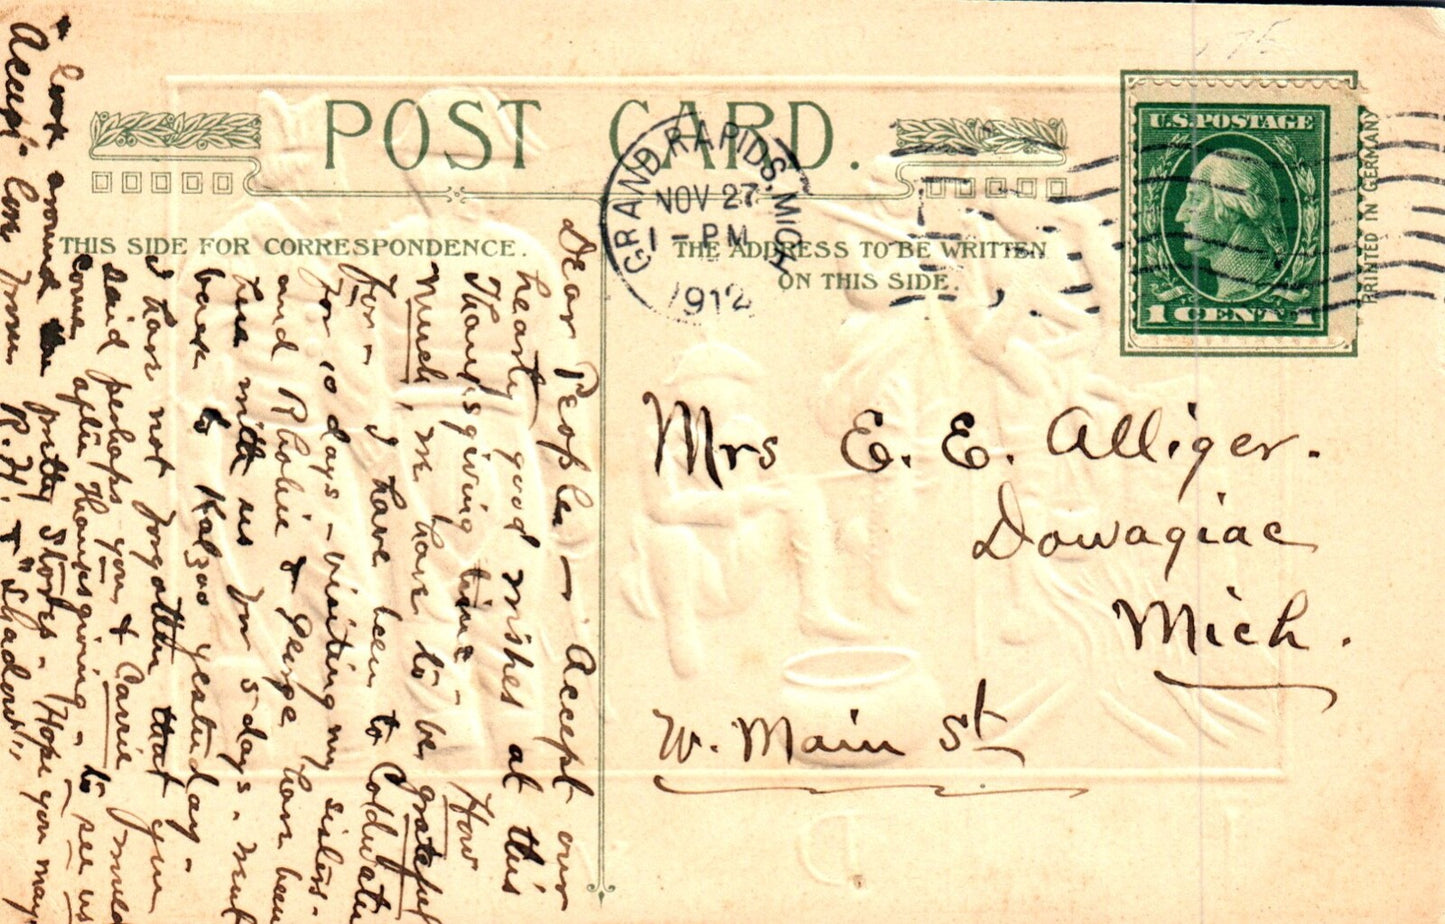 POST CARD.
THIS SIDE FOR CORRESPONDENCE.
THE ADDRESS TO BE WRITTEN
ON THIS SIDE.
GRAND RAPIDS, MICH
NOV 27
1 - PM
1912
U.S. POSTAGE
1 CENT 1
PRINTED IN GERMANY
Mrs E. E. Alliger.
Dowagiac
Mich.
W. Main St
Dear People — Accept our
hearty good wishes at this
Thanksgiving time - How
much, we have to be grateful
for - I have been to Coldwater
for 10 days - visiting my sisters.
and Rhobie & George have been
here with us for 5 days. went
back to Kalzoo yesterday -
I have not forgotten that you
said perhaps you & Carrie would
come after Thanksgiving - to see us
& look around the pretty Stores - Hope you may
Accept Love from R.H. & "Shadow",